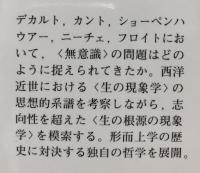 デカルト，カント，ショーペンハ
ウアー，ニーチェ，フロイトにお
いて，〈無意識〉の問題はどの
ように捉えられてきたか。西洋
近世における〈生の現象学〉の
思想的系譜を考察しながら，志
向性を超えた〈生の根源の現象
学〉を模索する。形而上学の歴
史に対決する独自の哲学を展開。